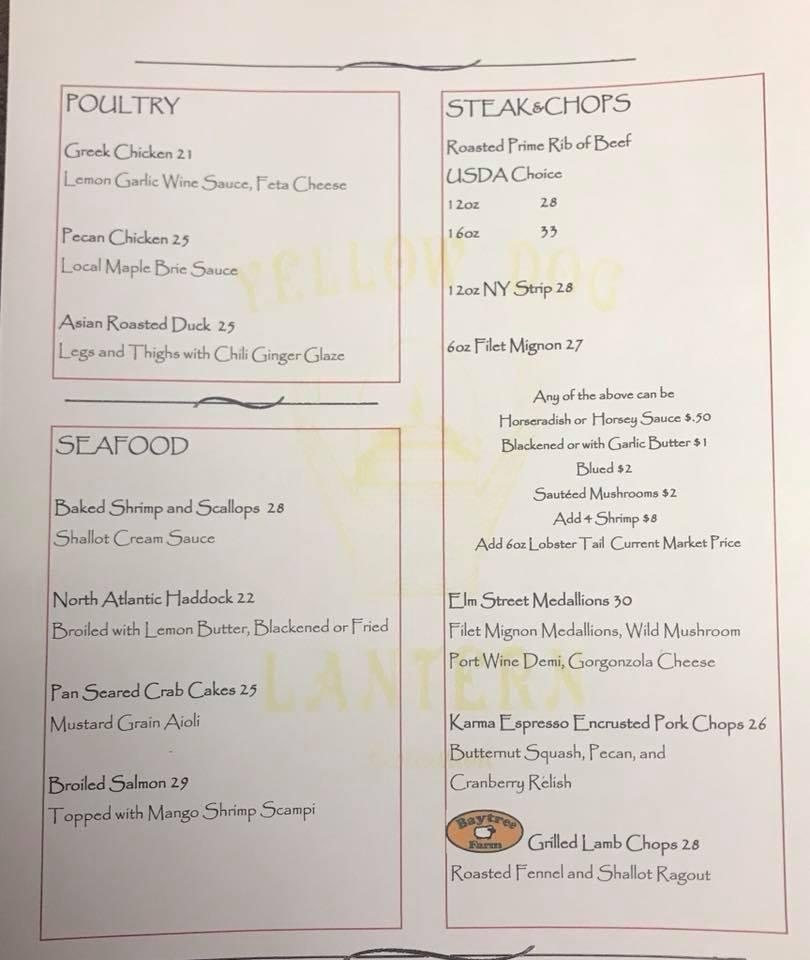 POULTRY
Greek Chicken 21
Lemon Garlic Wine Sauce, Feta Cheese
Pecan Chicken 25
Local Maple Brie Sauce
Asian Roasted Duck 25
Legs and Thighs with Chili Ginger Glaze
SEAFOOD
Baked Shrimp and Scallops 28
Shallot Cream Sauce
North Atlantic Haddock 22
Broiled with Lemon Butter, Blackened or Fried
Pan Seared Crab Cakes 25
Mustard Grain Aioli
Broiled Salmon 29
Topped with Mango Shrimp Scampi
STEAK&CHOPS
Roasted Prime Rib of Beef
USDA Choice
12oz 28
16oz 33
12oz NY Strip 28
6oz Filet Mignon 27
Any of the above can be
Horseradish or Horsey Sauce $.50
Blackened or with Garlic Butter $1
Blued $2
Sautéed Mushrooms $2
Add 4 Shrimp $8
Add 6oz Lobster Tail Current Market Price
Elm Street Medallions 30
Filet Mignon Medallions, Wild Mushroom
Port Wine Demi, Gorgonzola Cheese
Karma Espresso Encrusted Pork Chops 26
Butternut Squash, Pecan, and
Cranberry Relish
Baytree
Farm
Grilled Lamb Chops 28
Roasted Fennel and Shallot Ragout
YELLOW DOG
LANTERN